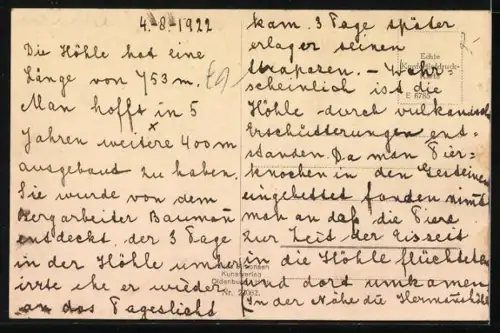 4.8.1922
Die Höhle hat eine
Länge von 753 m.
Man hofft in 5
Jahren weitere 400 m
ausgebaut zu haben.
Sie wurde von dem
Bergarbeiter Baumañ
entdeckt, der 3 Tage
in der Höhle umher
irrte ehe er wieder
an das Tageslicht
kam. 3 Tage später
erlag er seinen
Strapazen. – Wahr=
scheinlich ist die
Höhle durch vulkanische
Erschütterungen ent=
standen. Da man Tier=
knochen in den Gesteinen
eingebettet fanden nimt
man an daß die Tiere
zur Zeit der Eiszeit
in die Höhle flüchteten
und dort umkamen
In der Nähe die Hermannshöhle
Echte
E 6785
Kunstverlag
Nr. 22062.